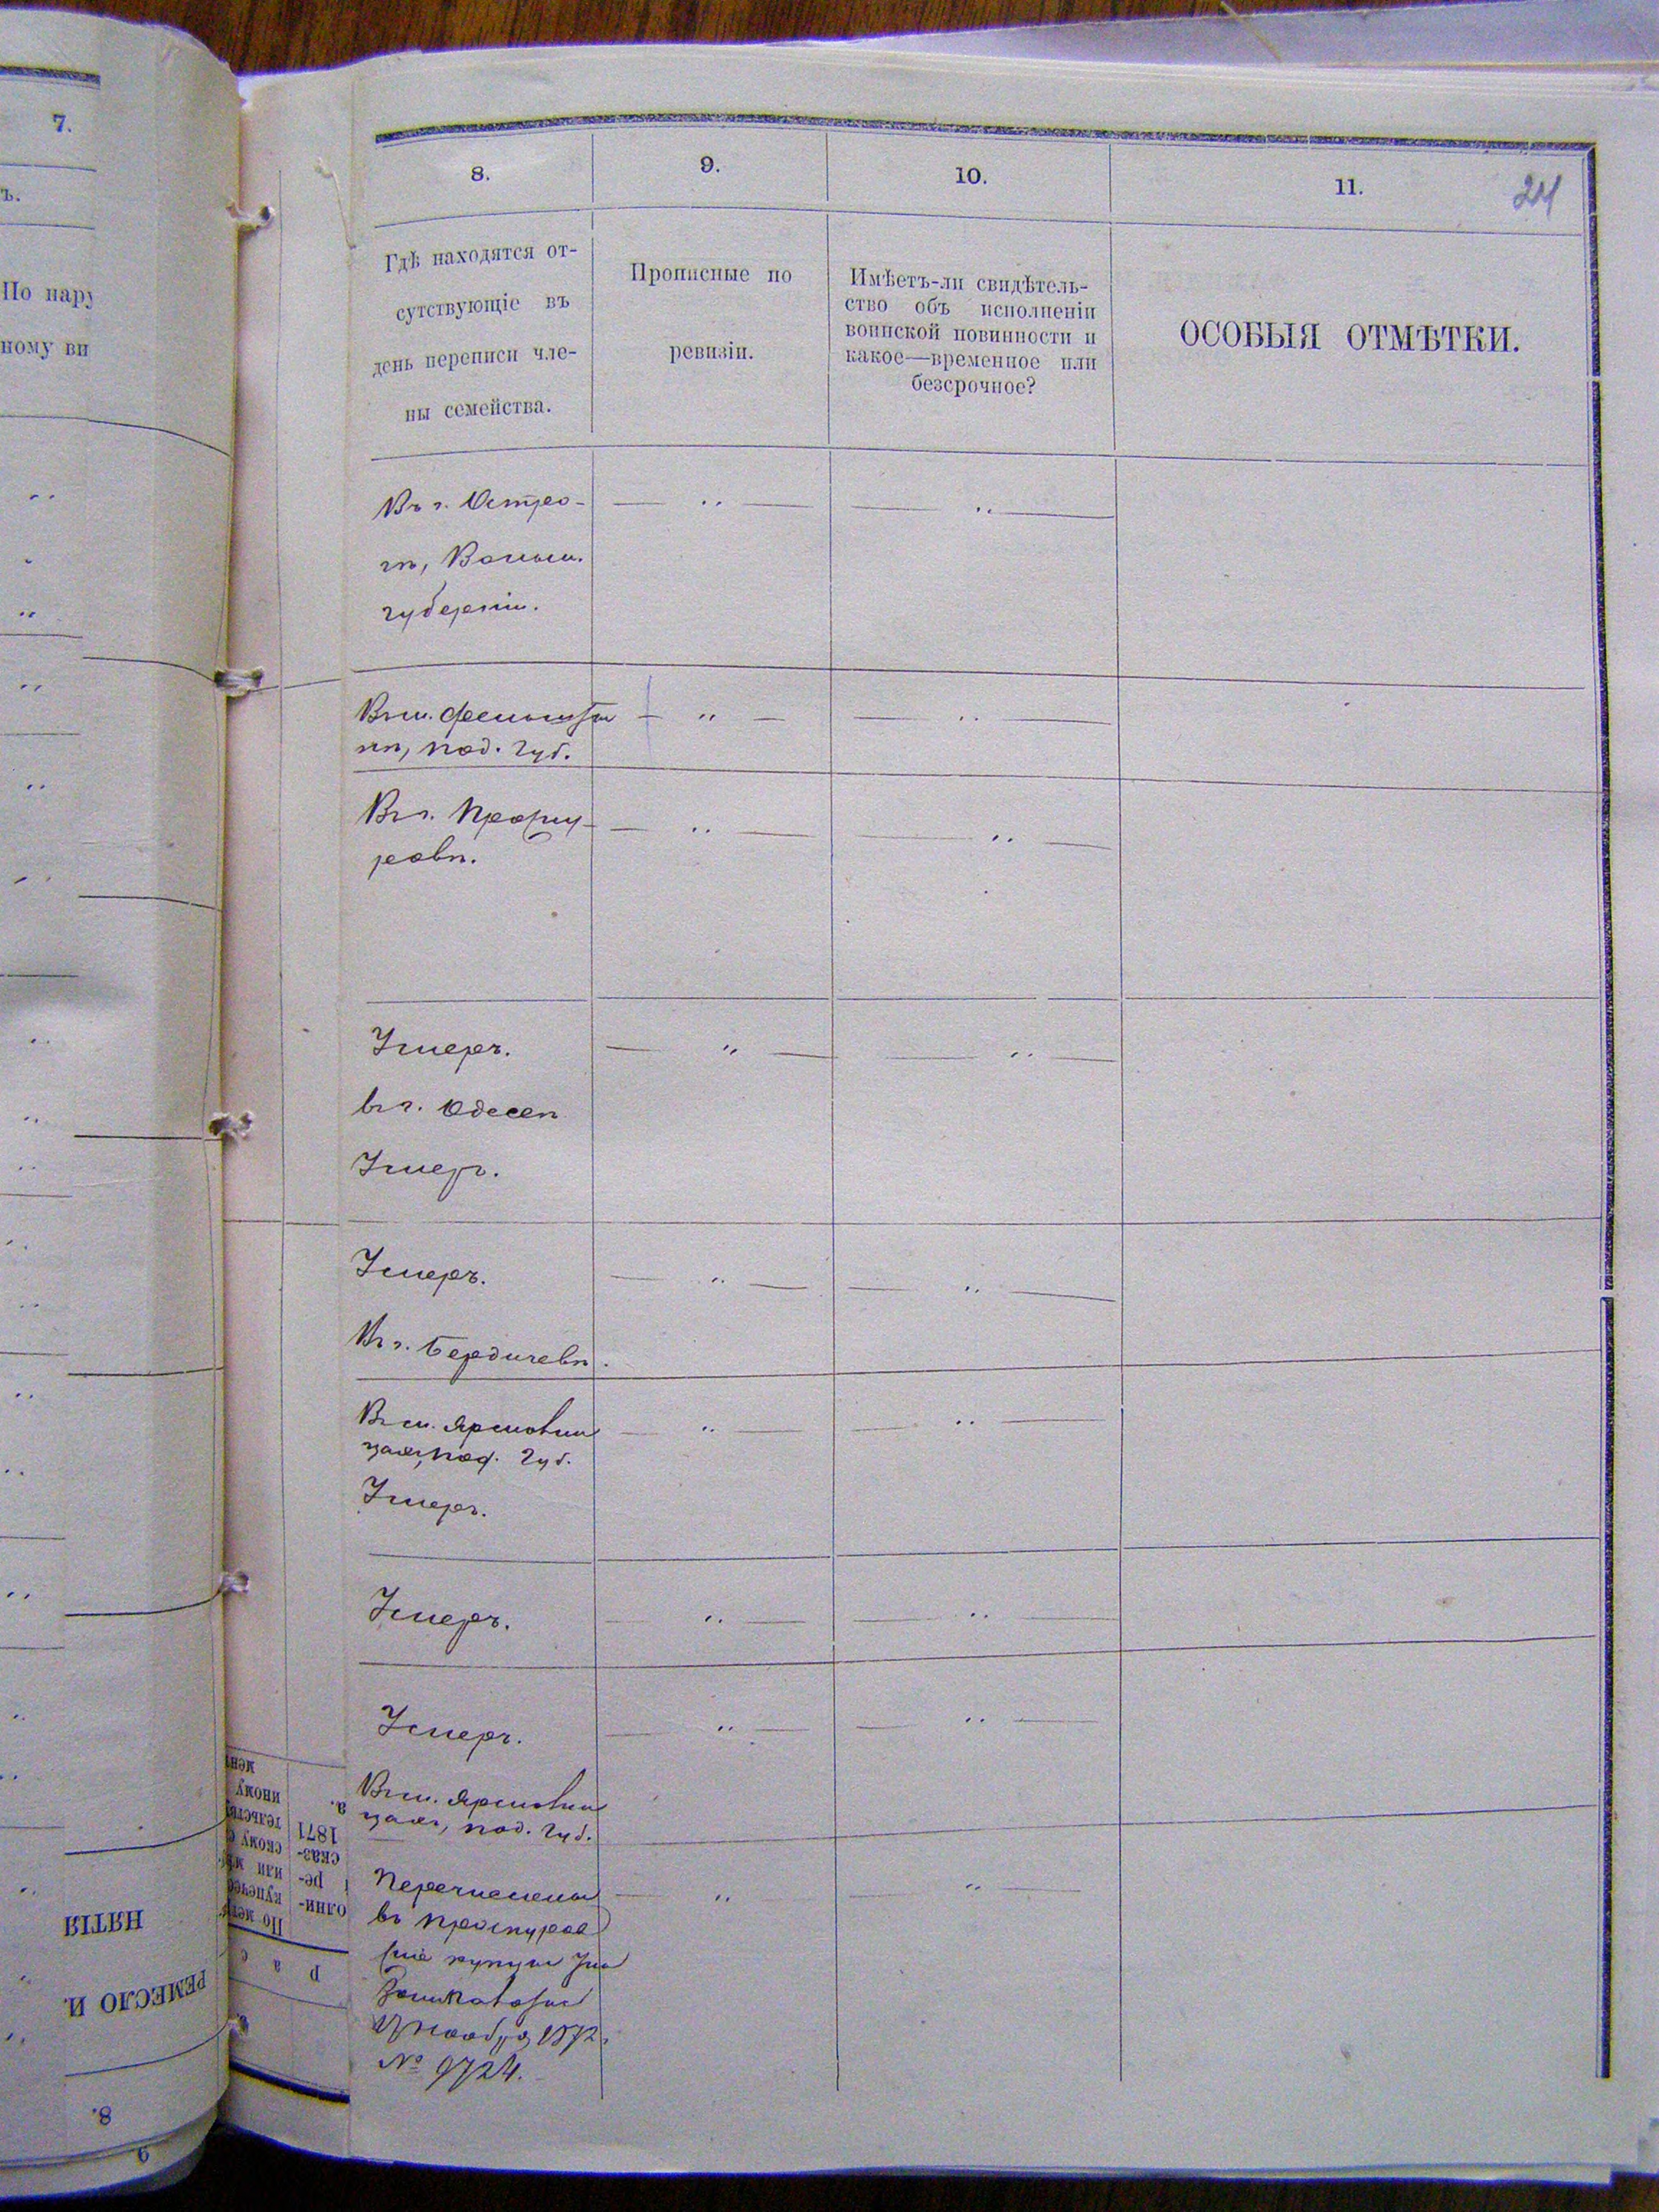 7.
ъ.
По нару
ному ви
8.
9.
10.
11.
24
Гдѣ находятся от-
сутствующіе въ
день переписи чле-
ны семейства.
Прописные по
ревизіи.
Имѣетъ-ли свидѣтель-
ство объ исполненіи
воинской повинности и
какое—временное или
безсрочное?
ОСОБЫЯ ОТМѢТКИ.
Въ г. Остро-
гѣ, Волын.
губерніи.
Въ м. Фельшти
нѣ, Под. губ.
Въ г. Проску-
ровѣ.
Умеръ.
въ г. Одессѣ
Умеръ.
Умеръ.
Въ г. Бердичевѣ.
Въ м. Ярмолин
цахъ, Под. губ.
Умеръ.
Умеръ.
Умеръ.
Въ м. Ярмолин
цахъ, Под. губ.
Перечислены
въ Проскуров
скіе купцы
ноября 1872.
№ 9724.
1871
сказ-
ре-
или
По
РЕМЕСЛО И
НЯТІЯ
8.
9